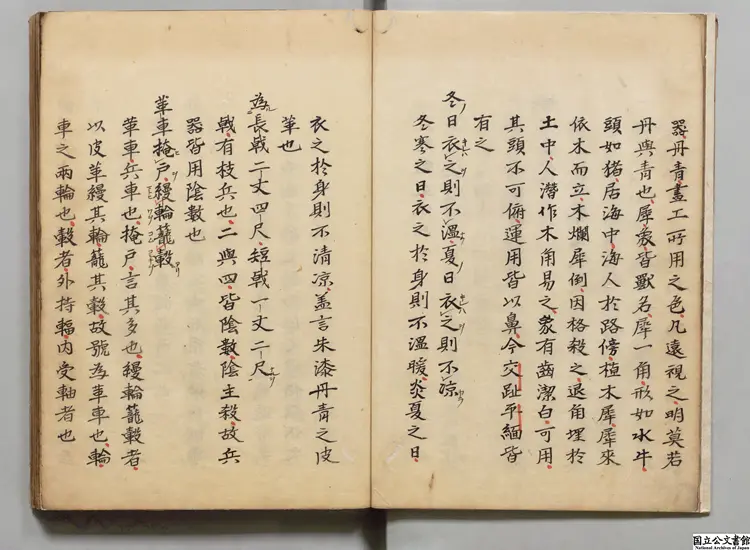 器丹青畫工所用之色凡遠視之明莫若
丹與青也犀象皆獸名犀一角形如水牛
頭如猪居海中海人於路傍植木犀犀來
依木而立木爛犀倒因格殺之退角埋於
土中人潜作木角易之象有齒潔白可用
其頭不可俯運用皆以鼻今交趾平緬皆
有之
冬日衣之則不溫夏日衣之則不凉
冬寒之日衣之於身則不溫暖炎夏之日
衣之於身則不清凉盖言朱漆丹青之皮
革也
為長戟二丈四尺短戟一丈二尺
戟有枝兵也二與四皆陰數陰主殺故兵
器皆用陰數也
革車掩戶縵輪籠轂
革車兵車也掩戶言其多也縵輪籠轂者
以皮革縵其輪籠其轂故號為革車也輪
車之兩輪也轂者外持輻内受軸者也
国立公文書館
National Archives of Japan